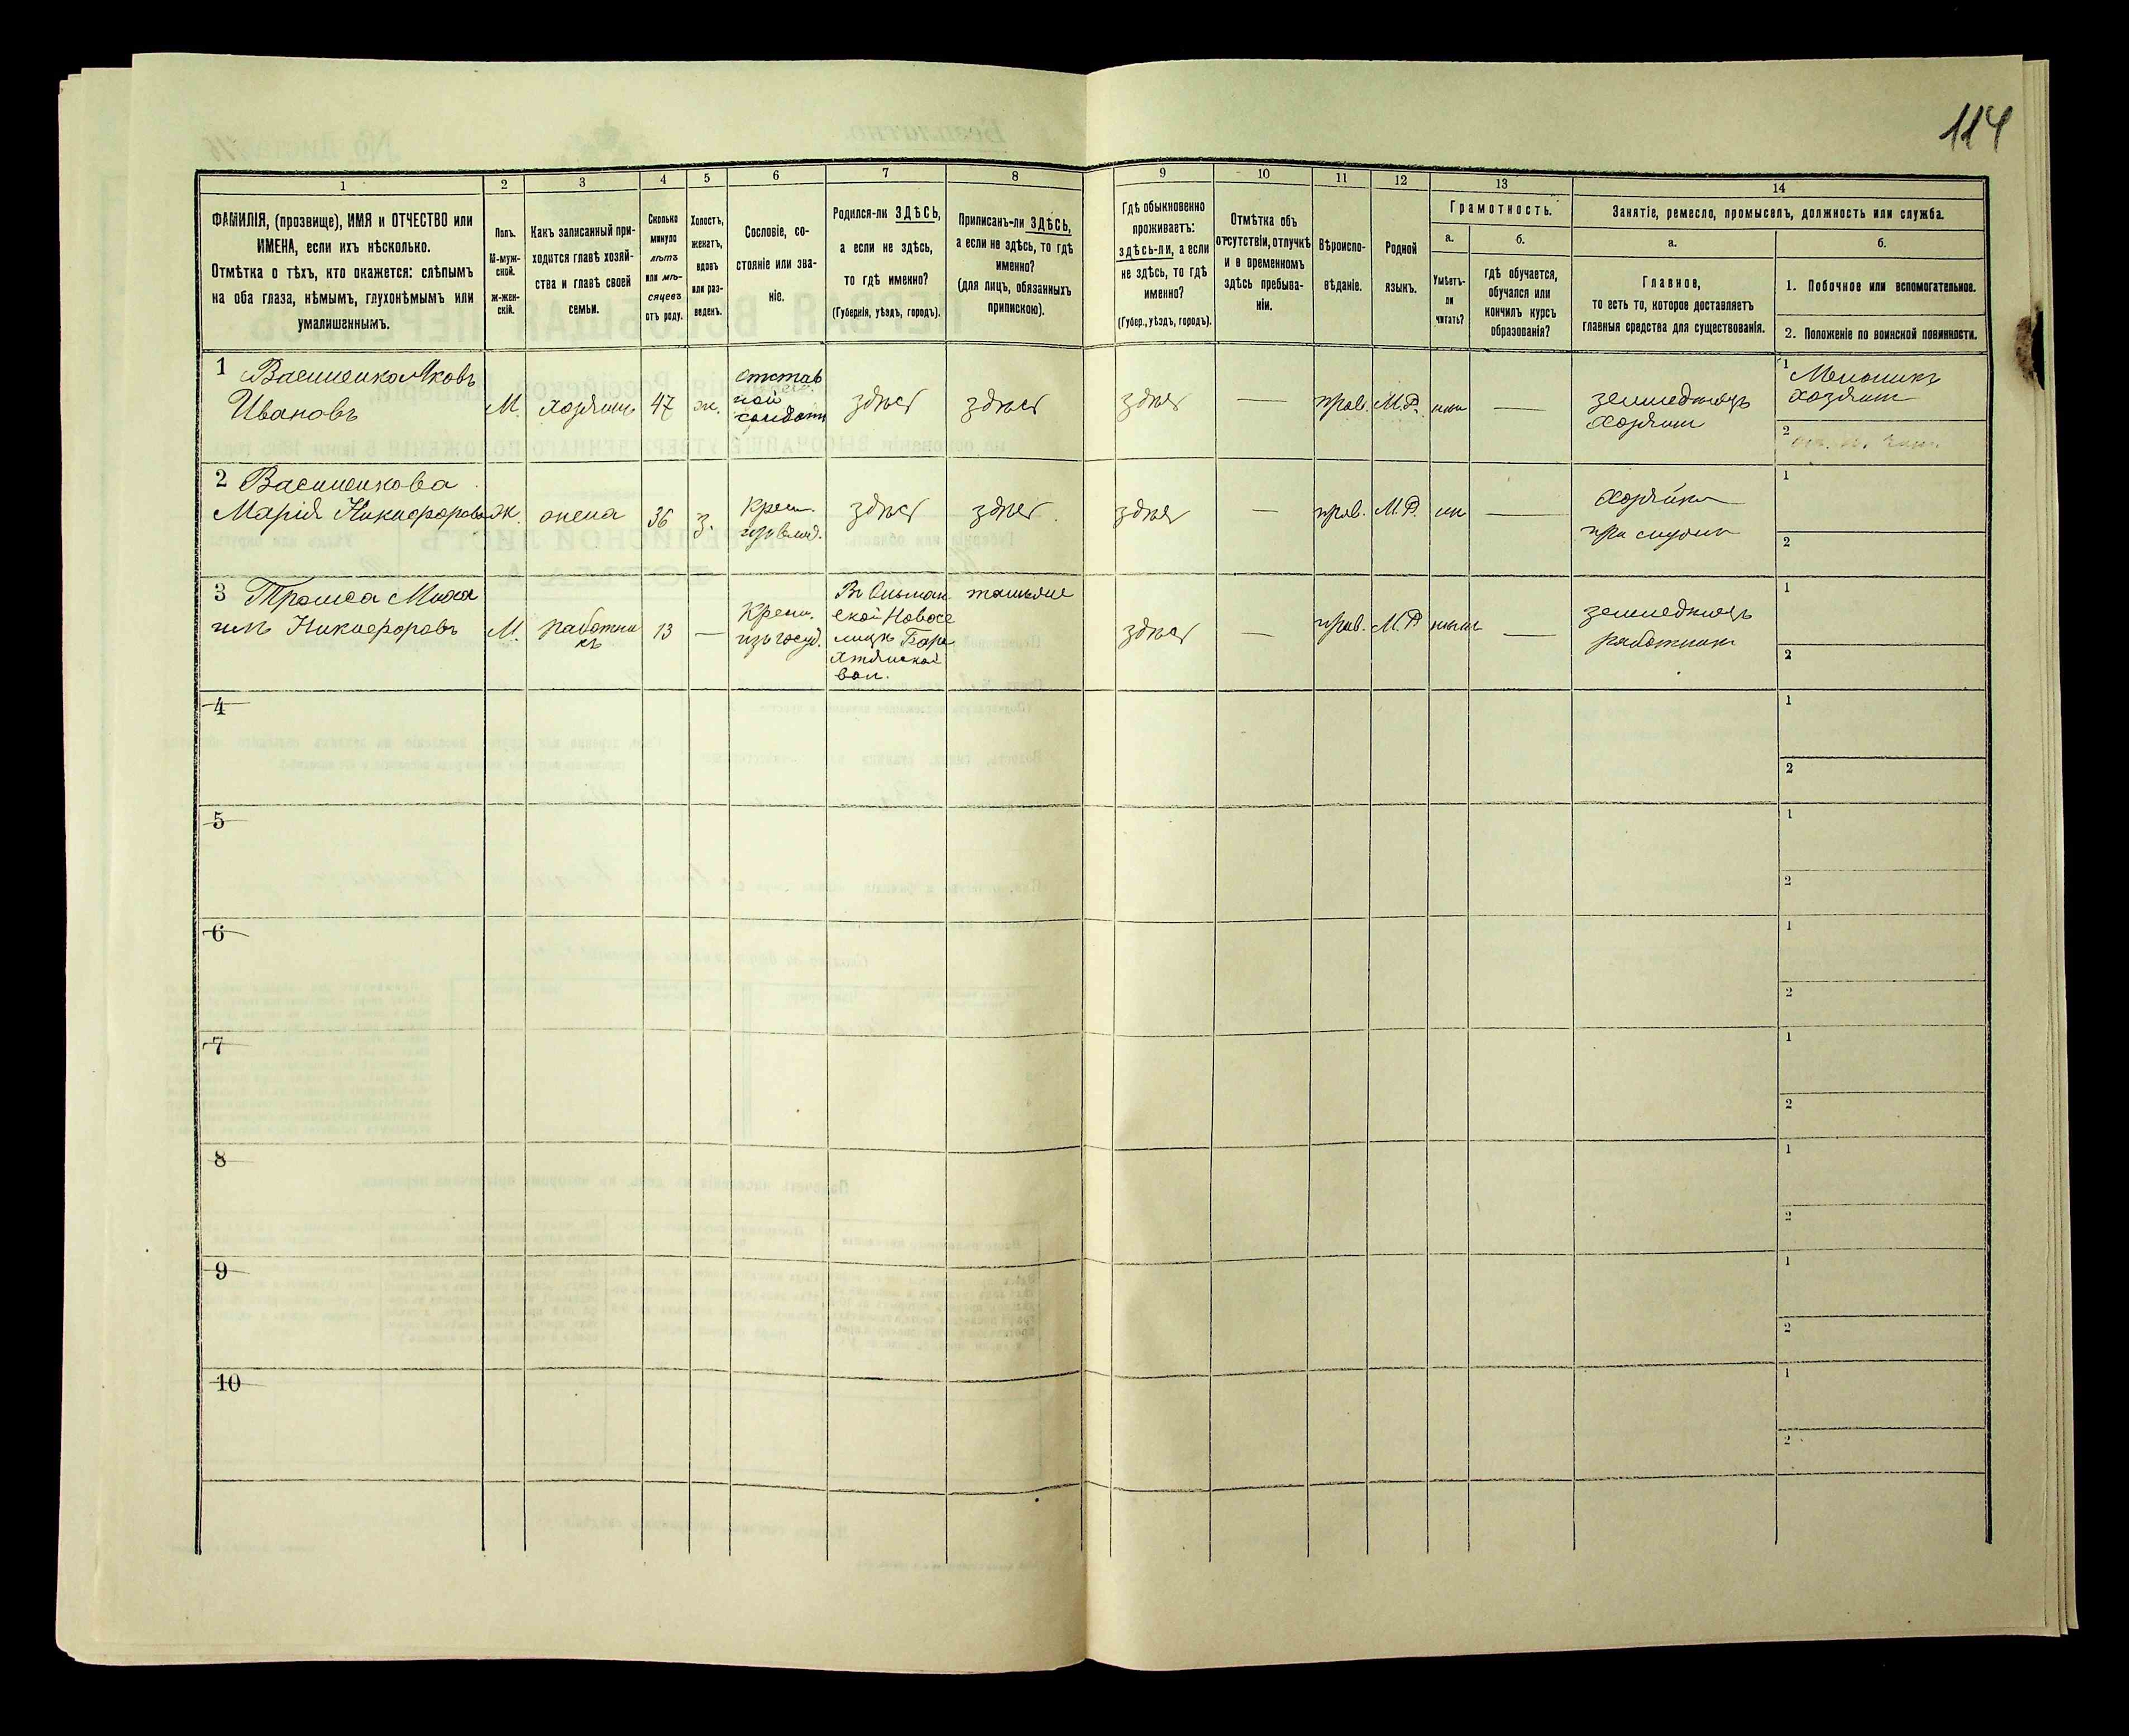 114
1 2 3 4 5 6 7 8 9 10 11 12 13 14
ФАМИЛІЯ, (прозвище), ИМЯ и ОТЧЕСТВО или
ИМЕНА, если ихъ нѣсколько.
Отмѣтка о тѣхъ, кто окажется: слѣпымъ
на оба глаза, нѣмымъ, глухонѣмымъ или
умалишеннымъ.
Полъ.
М-муж-
ской.
ж-жен-
скій.
Какъ записанный при-
ходится главѣ хозяй-
ства и главѣ своей
семьи.
Сколько
минуло
лѣтъ
или мѣ-
сяцевъ
отъ роду.
Холостъ,
женатъ,
вдовъ
или раз-
веденъ.
Сословіе, со-
стояніе или зва-
ніе.
Родился-ли ЗДѢСЬ,
а если не здѣсь,
то гдѣ именно?
(Губернія, уѣздъ, городъ).
Приписанъ-ли ЗДѢСЬ,
а если не здѣсь, то гдѣ
именно?
(для лицъ, обязанныхъ
припискою).
Гдѣ обыкновенно
проживаетъ:
здѣсь-ли, а если
не здѣсь, то гдѣ
именно?
(Губер., уѣздъ, городъ).
Отмѣтка объ
отсутствіи, отлучкѣ
и о временномъ
здѣсь пребыва-
ніи.
Вѣроиспо-
вѣданіе.
Родной
языкъ.
Грамотность.
а.
Умѣетъ-
ли
читать?
б.
гдѣ обучается,
обучался или
кончилъ курсъ
образованія?
Занятіе, ремесло, промыселъ, должность или служба.
а.
Главное,
то есть то, которое доставляетъ
главныя средства для существованія.
б.
1. Побочное или вспомогательное.
2. Положеніе по воинской повинности.
1 Василенко Яковъ
Ивановъ
М.
хозяинъ
47
ж.
отстав
ной
солдатъ
здѣсь
здѣсь
здѣсь
—
прав.
М.Р.
—
земледѣлецъ
хозяинъ
1
хозяинъ
2
2 Василенкова
Марія Никифорова
Ж.
жена
36
з.
крест.
здѣсь
здѣсь
здѣсь
—
прав.
М.Р.
—
хозяйка
при
1
2
3 Трошса Миха
илъ Никифоровъ
М.
работни
къ
13
—
крест.
изъ госуд.
Новосе
вол.
здѣсь
—
прав.
М.Р
—
земледѣлецъ
работникъ
1
2
4
1
2
5
1
2
6
1
2
7
1
2
8
1
2
9
1
2
10
1
2